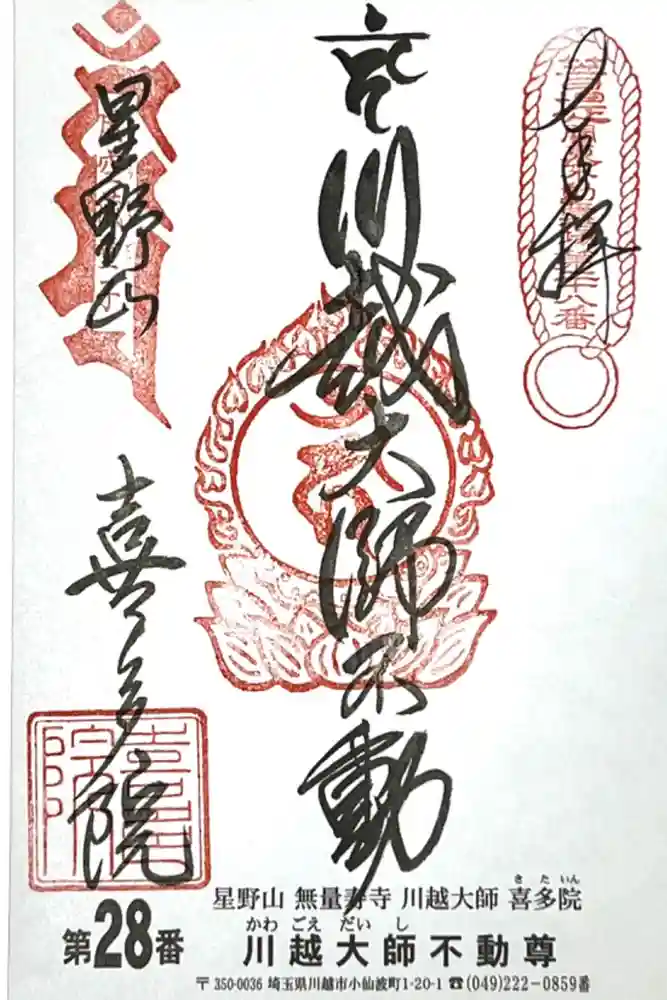 奉拝
川越大師不動
星野山
喜多院
喜多院
星野山 無量寿寺 川越大師 喜多院
きたいん
第28番
川越大師不動尊
かわごえだいし
〒350-0036 埼玉県川越市小仙波町1-20-1 ☎(049)222-0859番